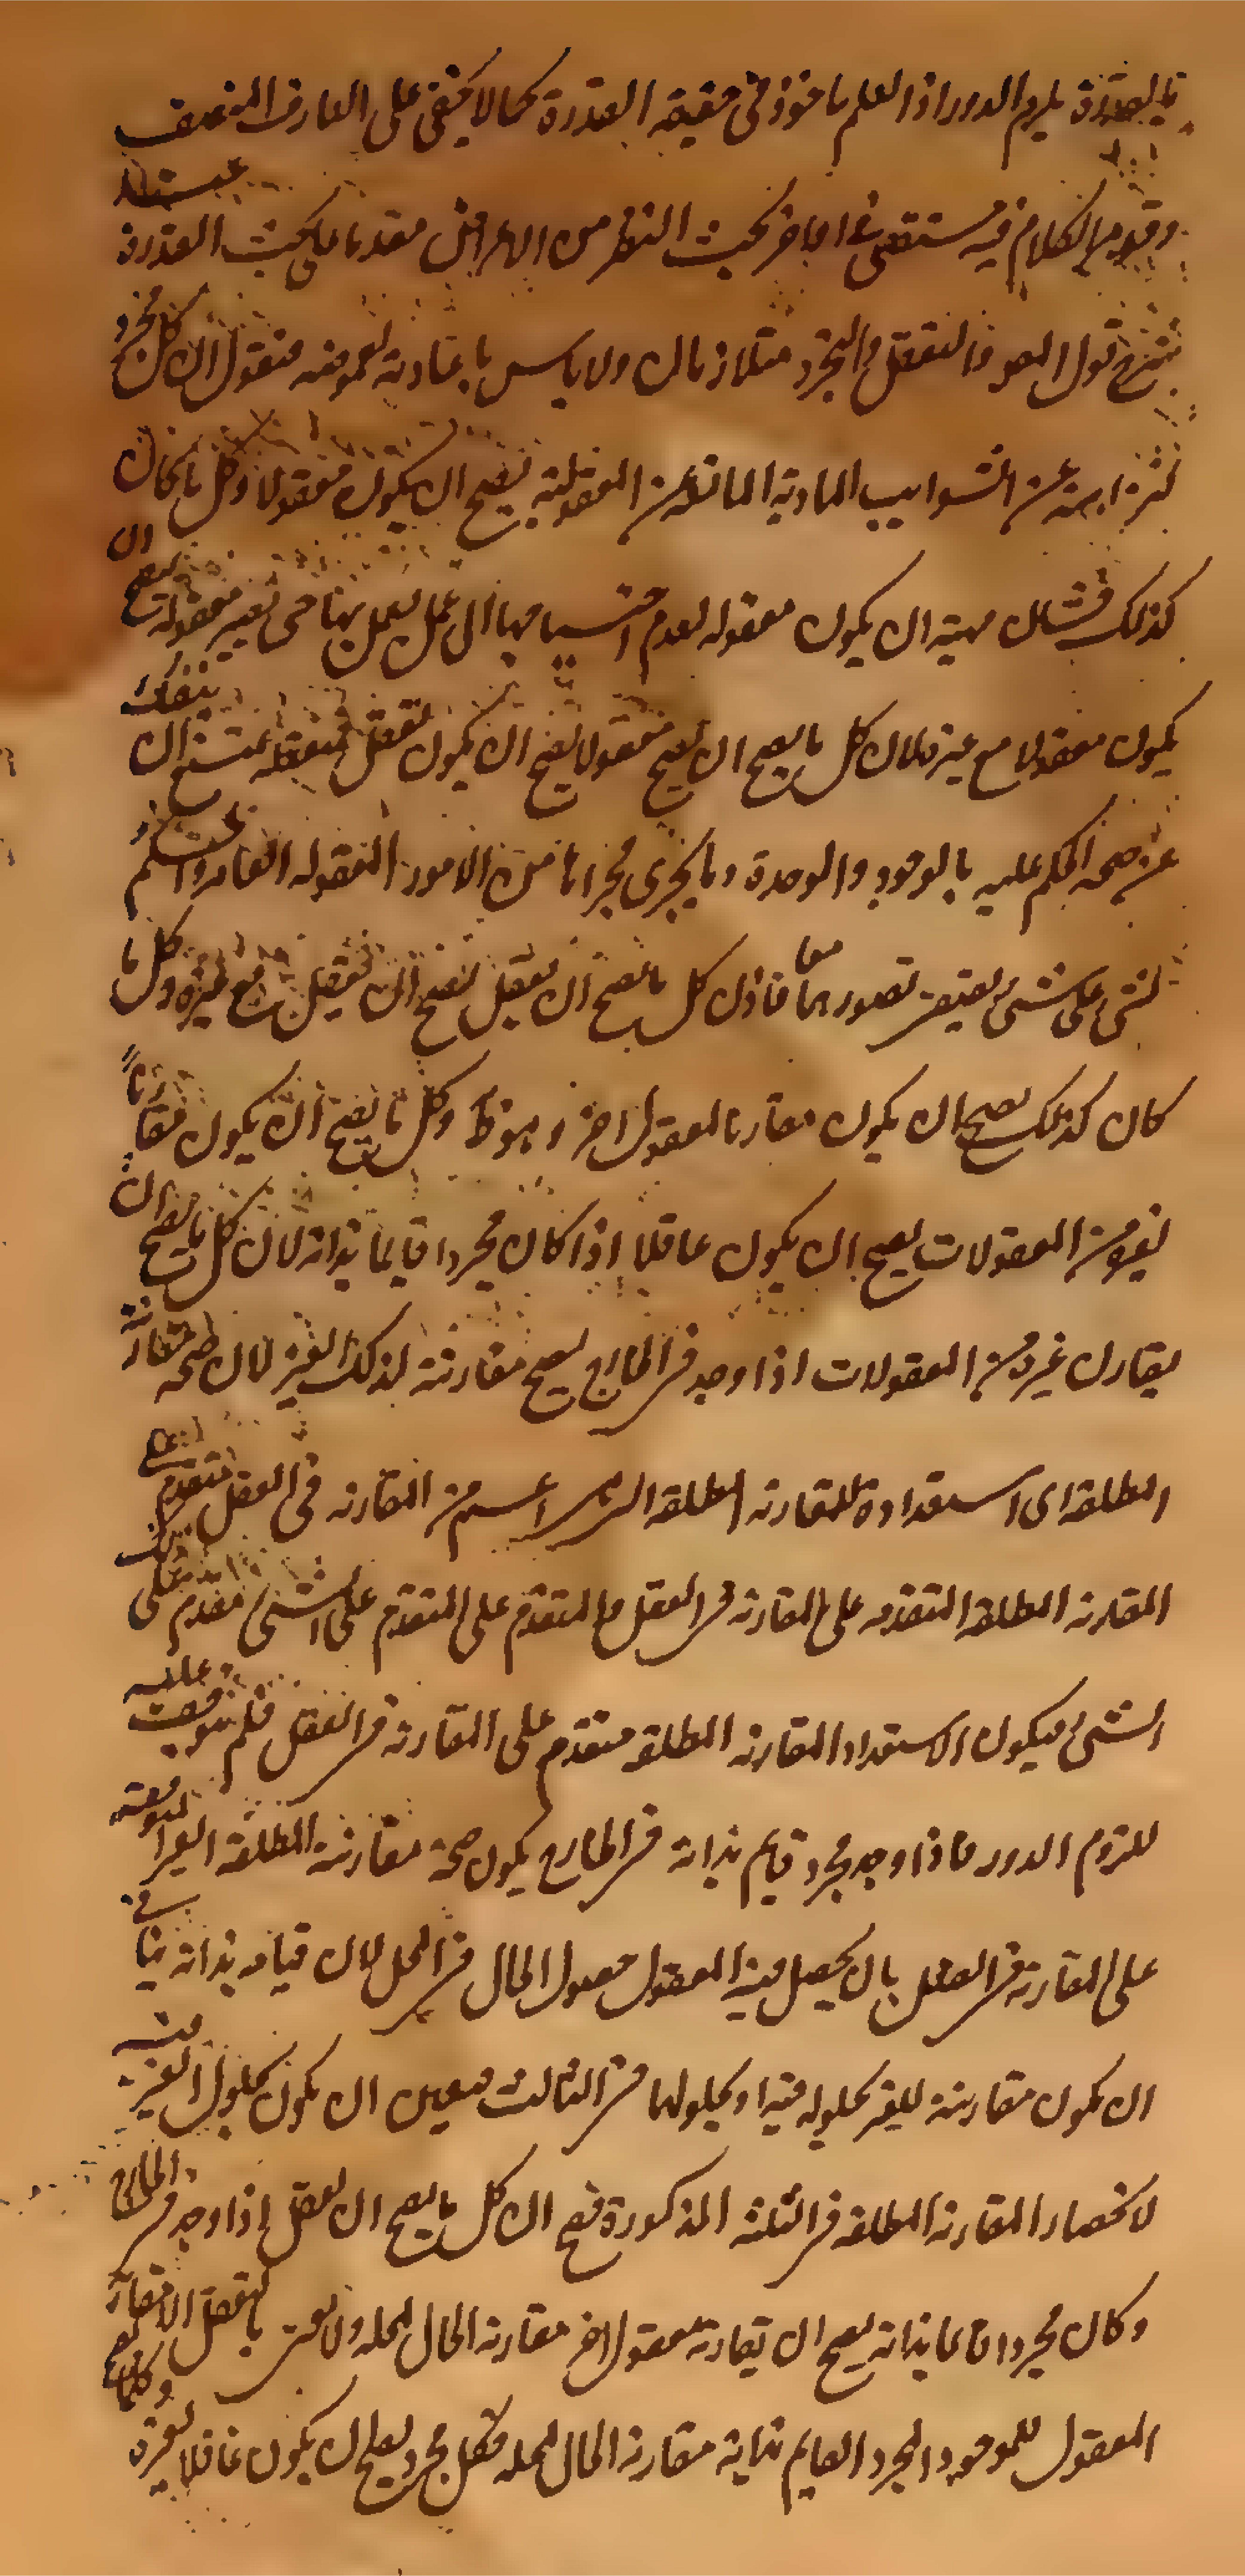 بالقدرة يلزم الدور اذ العلم ماخوذ فى حقيقة القدرة كما لا يخفى على العارف المنصف
وقد مر الكلام فيه مستقصى فى اواخر بحث النظر من الاعراض مقدما على بحث القدرة عبد
قول المص والتعقل والتجرد متلازمان ولا باس باعادته لغموضه فنقول ان كل مجرد
عن الشوايب المادية المانعة عن المعقولية فيصح ان يكون معقولا وكل ما كان
كذلك فشان مهيته ان يكون معقوله لعدم احتياجها الى عمل يعمل بها حتى تصير معقولة فيصح ان
يكون معقولا مع غيره لان كل ما يصح ان يصح معقولا يصح ان يكون تعقل فتعقله يمتنع ان ينفك
عن صحة الحكم عليه بالوجود والوحدة وما يجرى مجراها من الامور المعقوله العامة والحكم
لشئ على شئ يقتضى تصورهما معا فاذن كل ما يصح ان يعقل يصح ان يعقل مع غيره وكل ما
كان كذلك يصح ان يكون مقارنا لمعقول اخر وهو ظ وكل ما يصح ان يكون مقارنا
لغيره من المعقولات يصح ان يكون عاقلا اذا كان مجردا قايما بذاته لان كل ما يصح ان
يقارن غيره من المعقولات اذا وجد فى الخارج يصح مقارنته لذلك الغير لان صحة مقارنة
المطلقة اى استعداده للمقارنة المطلقة التى هى اعم من المقارنه فى العقل متقدم على
المقارنه المطلقه المتقدمه على المقارنه فى العقل والمتقدم على المتقدم على الشئ متقدم على ذلك
الشئ فيكون الاستعداد المقارنه المطلقه متقدم على المقارنة فى العقل فلم يتوقف عليه
للزوم الدور فاذا وجد مجرد قايم بذاته فى الخارج يكون صحة مقارنته المطلقة الغير المتوقفة
على المقارنة فى العقل بان يحصل فيه المعقول حصول الحال فى المحل لان قيامه بذاته ينافى
ان يكون مقارنته للغير بحلوله فيه او بحلولهما فى الثالث فيتعين ان يكون بحلول الغير فيه
لانحصار المقارنه المطلقه فى الثلثه المذكورة فصح ان كل ما يصح ان يعقل اذا وجد فى الخارج
وكان مجردا قايما بذاته يصح ان يقارنه معقول اخر مقارنه الحال لمحله ولا نعنى بالتعقل الا مقارنة
المعقول للموجود المجرد القايم بذاته مقارنه الحال لمحله فكل مجرد يصلح ان يكون عاقلا لغيره وكلما